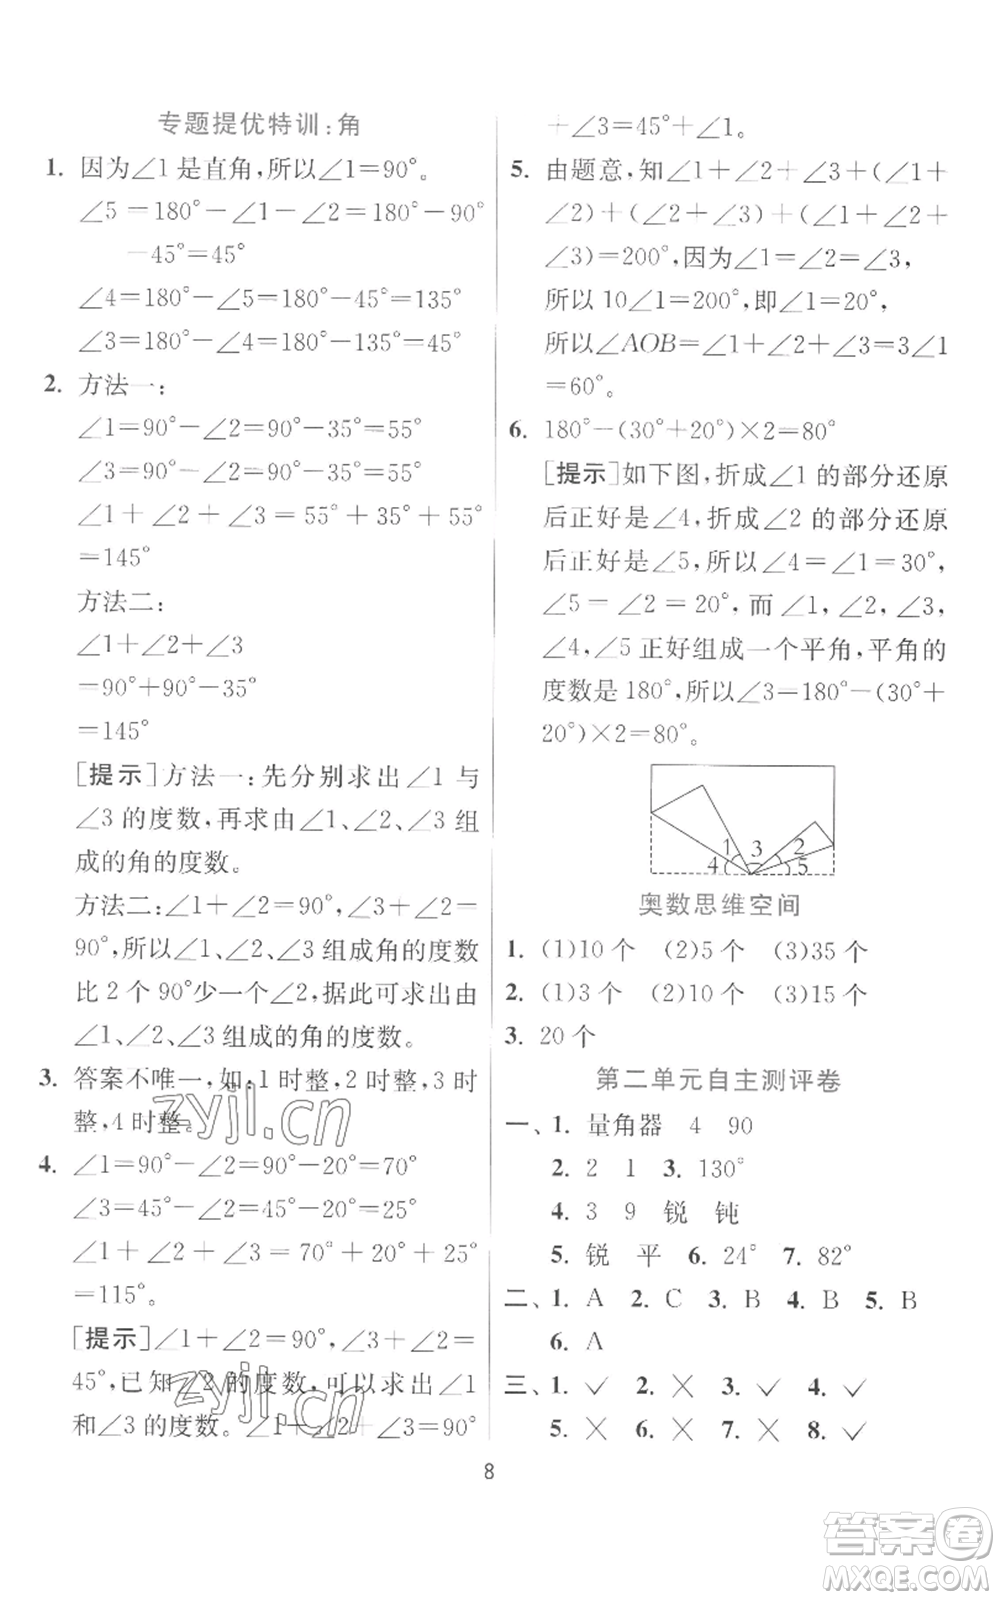 专题提优特训:角
1. 因为∠1是直角,所以∠1=90°。
∠5=180°-∠1-∠2=180°-90°
-45°=45°
∠4=180°-∠5=180°-45°=135°
∠3=180°-∠4=180°-135°=45°
2. 方法一:
∠1=90°-∠2=90°-35°=55°
∠3=90°-∠2=90°-35°=55°
∠1+∠2+∠3=55°+35°+55°
=145°
方法二:
∠1+∠2+∠3
=90°+90°-35°
=145°
[提示]方法一:先分别求出∠1与
∠3的度数,再求由∠1、∠2、∠3组
成的角的度数。
方法二:∠1+∠2=90°,∠3+∠2=
90°,所以∠1、∠2、∠3组成角的度数
比2个90°少一个∠2,据此可求出由
∠1、∠2、∠3组成的角的度数。
3. 答案不唯一,如:1时整,2时整,3时
整,4时整。
4. ∠1=90°-∠2=90°-20°=70°
∠3=45°-∠2=45°-20°=25°
∠1+∠2+∠3=70°+20°+25°
=115°。
[提示]∠1+∠2=90°,∠3+∠2=
45°,已知∠2的度数,可以求出∠1
和∠3的度数。∠1+∠2+∠3=90°
+∠3=45°+∠1。
5. 由题意,知∠1+∠2+∠3+(∠1+
∠2)+(∠2+∠3)+(∠1+∠2+
∠3)=200°,因为∠1=∠2=∠3,
所以10∠1=200°,即∠1=20°,
所以∠AOB=∠1+∠2+∠3=3∠1
=60°。
6. 180°-(30°+20°)×2=80°
[提示]如下图,折成∠1的部分还原
后正好是∠4,折成∠2的部分还原
后正好是∠5,所以∠4=∠1=30°,
∠5=∠2=20°,而∠1,∠2,∠3,
∠4,∠5正好组成一个平角,平角的
度数是180°,所以∠3=180°-(30°+
20°)×2=80°。
1 3 2
4 5
奥数思维空间
1. (1)10个 (2)5个 (3)35个
2. (1)3个 (2)10个 (3)15个
3. 20个
第二单元自主测评卷
一、1. 量角器 4 90
2. 2 1 3. 130°
4. 3 9 锐 钝
5. 锐 平 6. 24° 7. 82°
二、1. A 2. C 3. B 4. B 5. B
6. A
三、1. ✓ 2. × 3. ✓ 4. ✓
5. × 6. × 7. × 8. ✓
8
zyjl.cn
zyjl.cn
答案圈
MXQE.COM